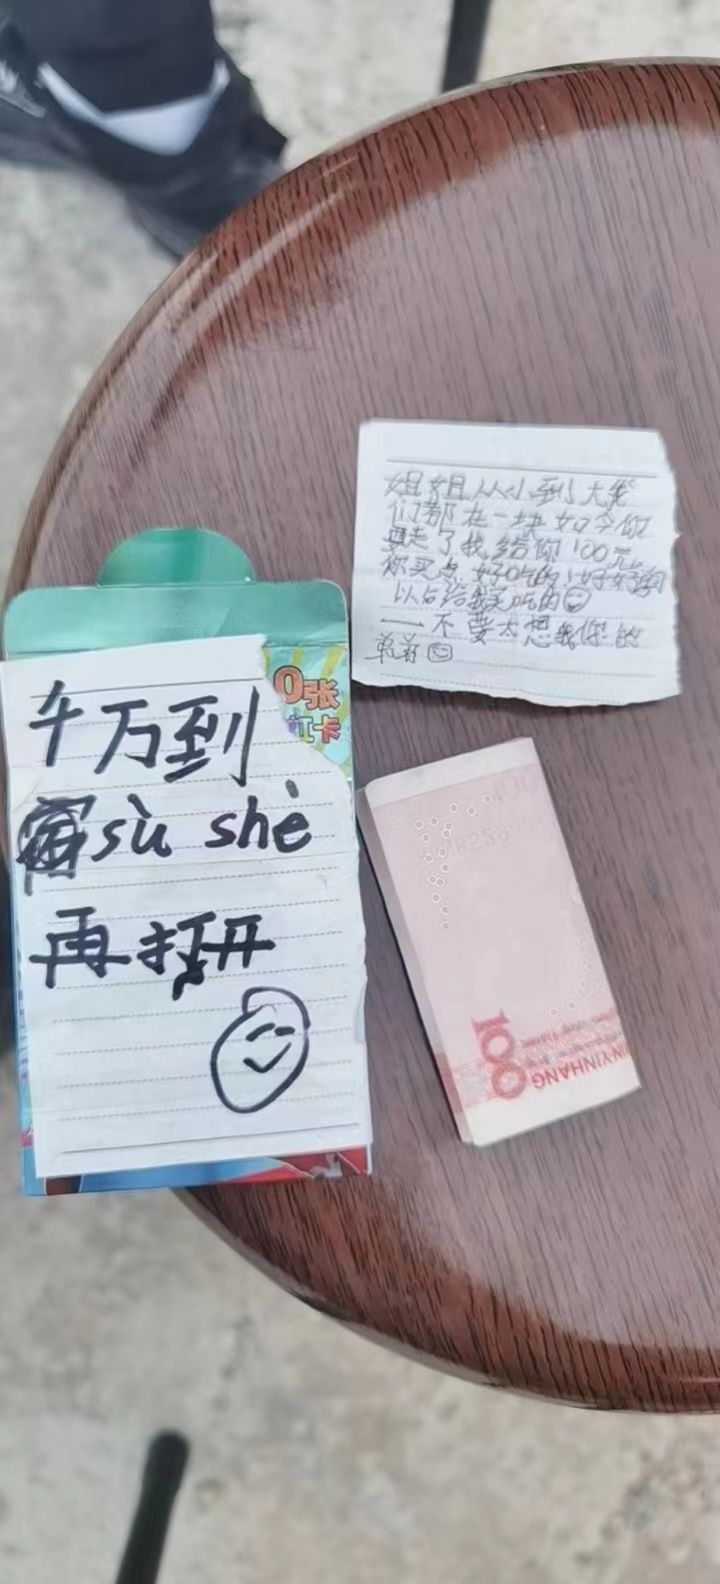 千万到
sù shè
再打开
0张
卡
姐姐从小到大我
们都在一块如今你
要走了我给你100元
你买点好吃的!好好
以后给我买吃的
一不要太想我你的
100
YINHANG